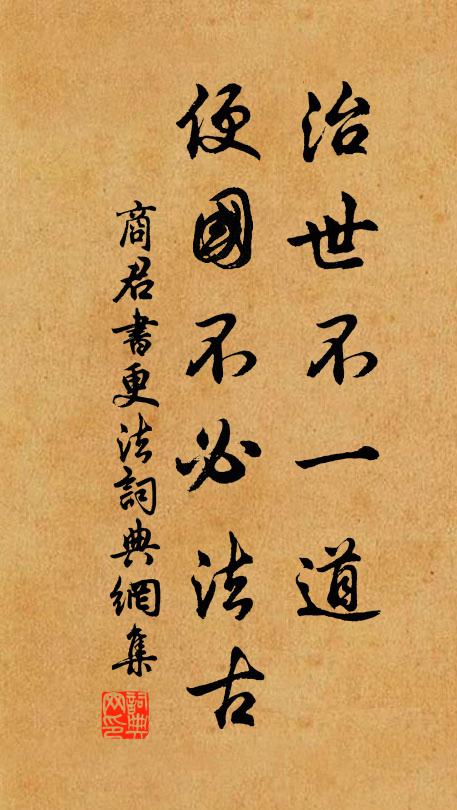 治世不一道
便國不必法古
商君書更法詞典網集
詞典网印